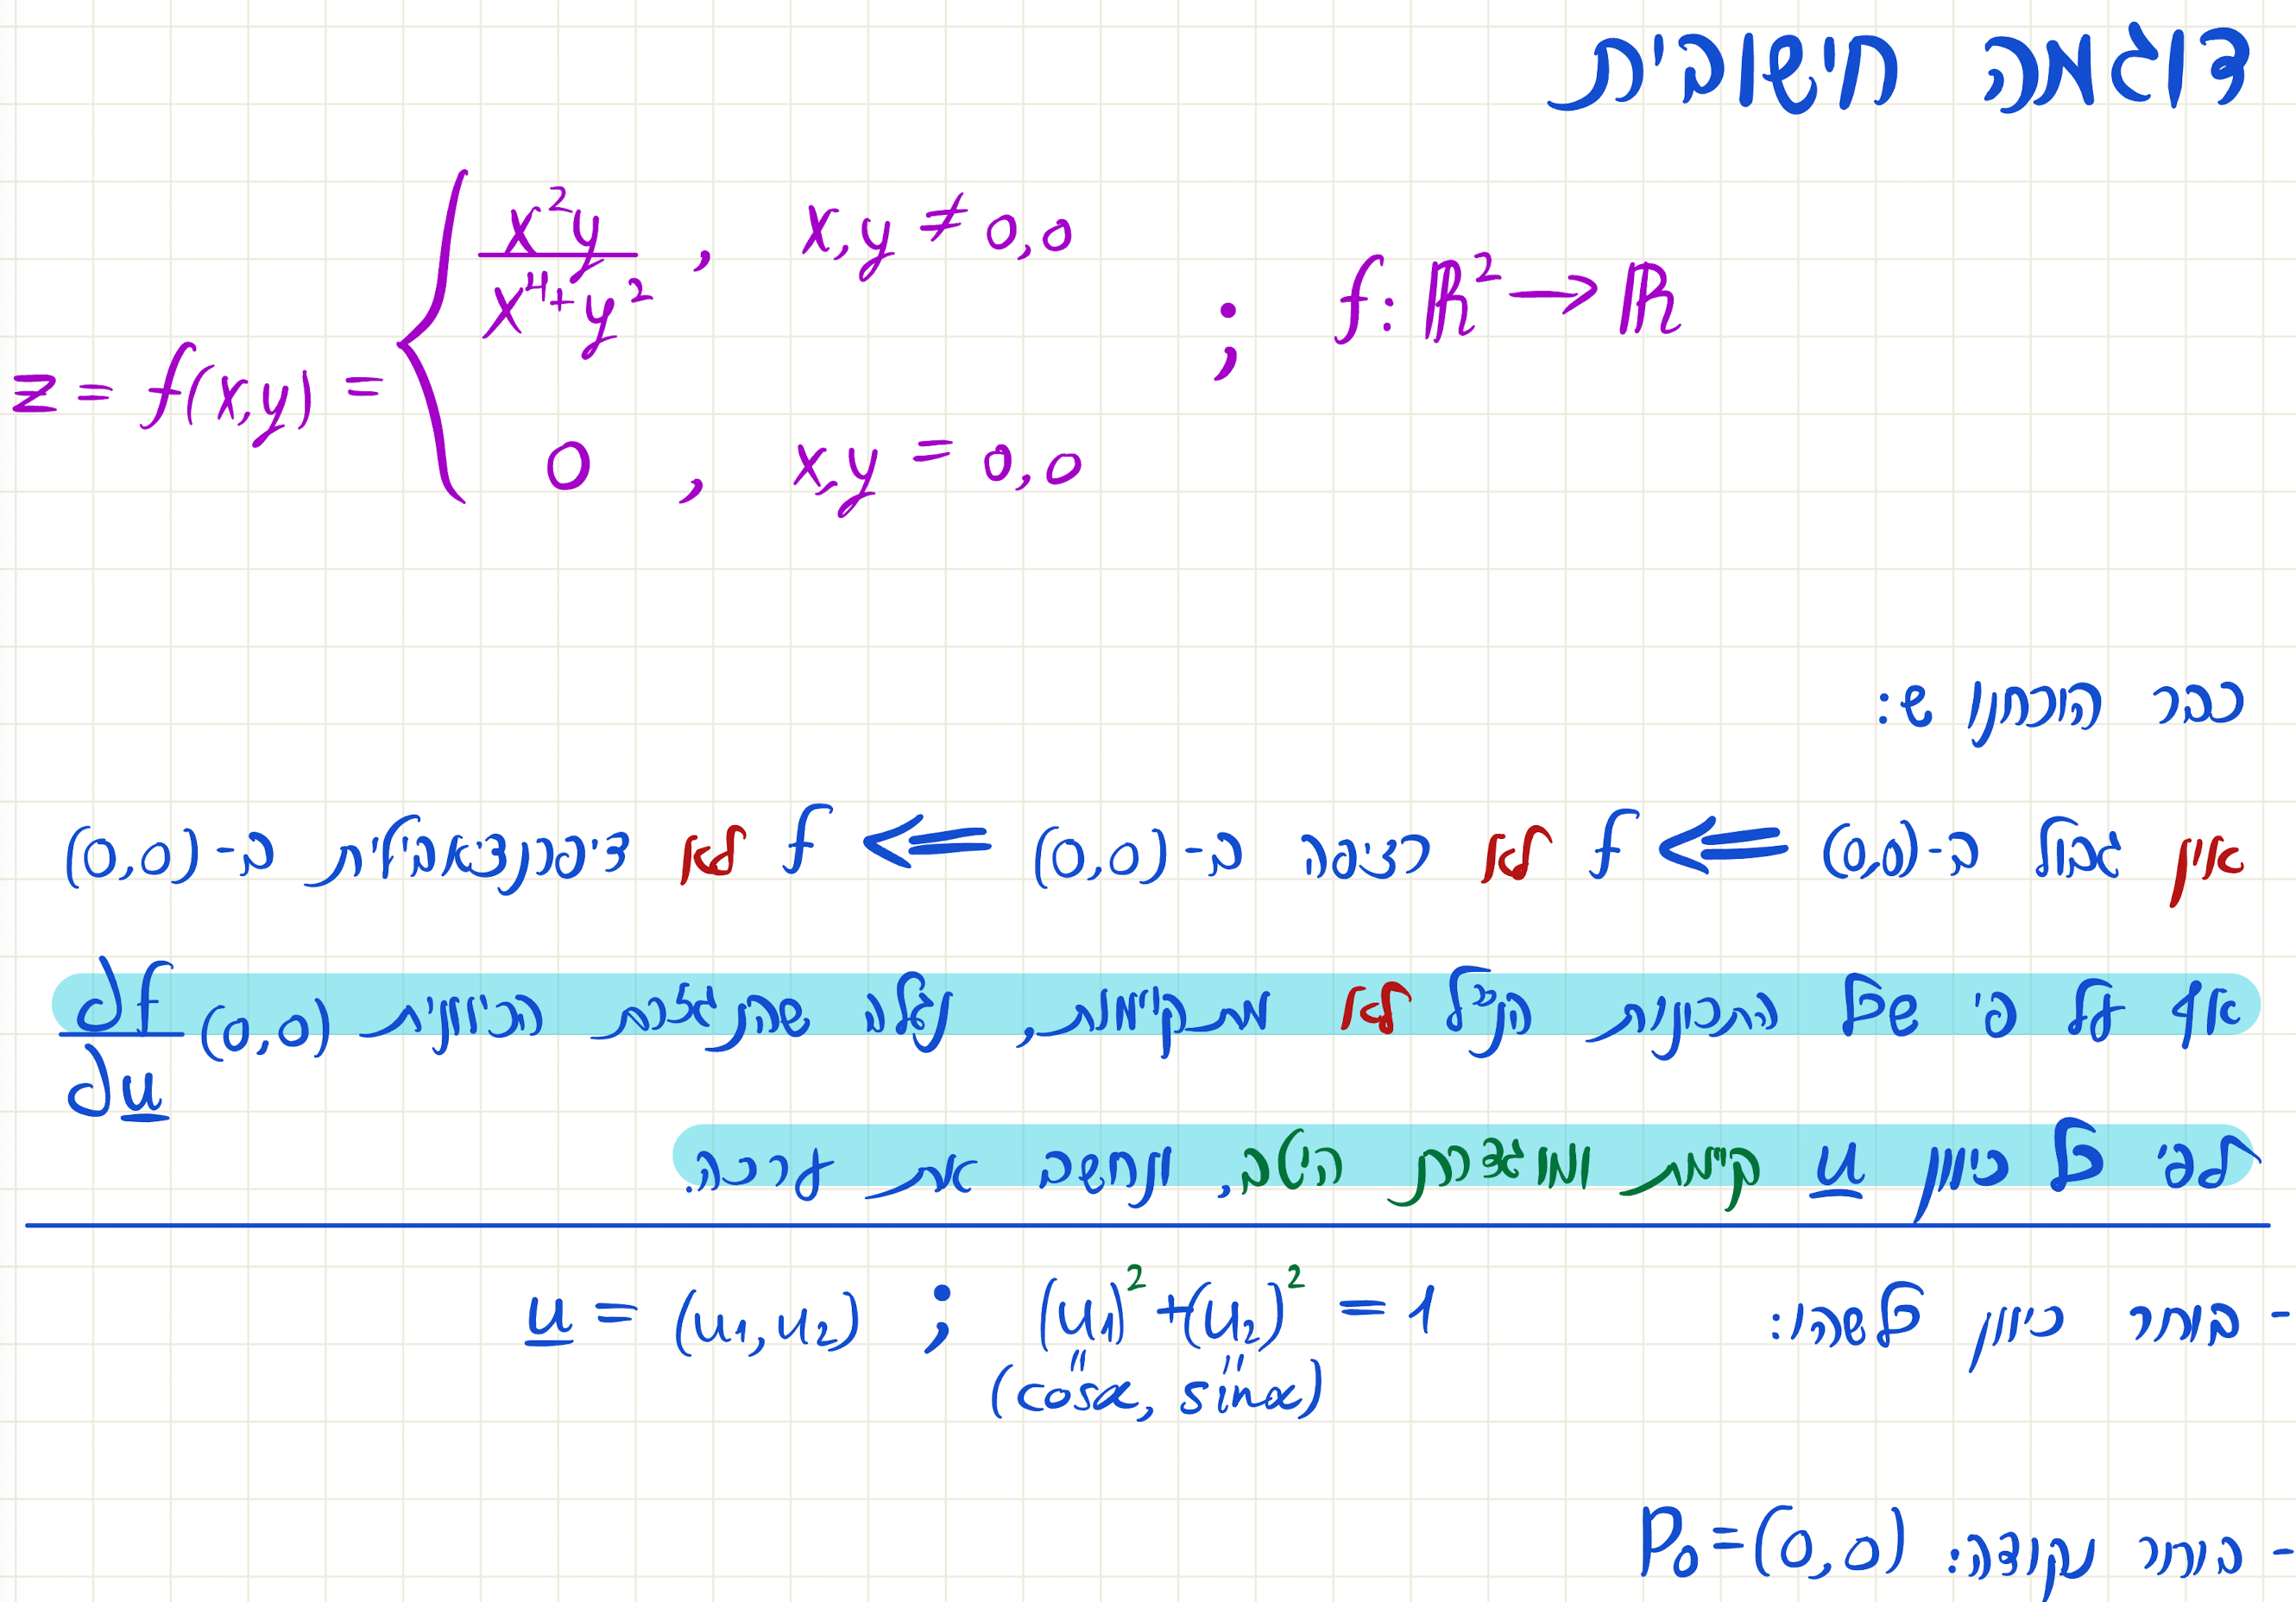 דוגמה חישובית
z = f(x,y) = { x²y / x⁴+y² , x,y ≠ 0,0 ; f: ℝ² → ℝ
0 , x,y = 0,0
כבר הוכחנו ש:
אין גבול ב-(0,0) ⇐ f לא רציפה ב-(0,0) ⇐ f לא דיפרנציאבילית ב-(0,0)
אף על פי שכל התכונות הנ״ל לא מתקיימות, נגלה שהנגזרת הכיוונית ∂f/∂u (0,0)
לפי כל כיוון u קיימת ומוגדרת היטב, ונחשב את ערכה.
- בוחר כיוון כלשהו: u = (u₁, u₂) ; (u₁)² + (u₂)² = 1
(cosα, sinα)
- בוחר נקודה: P₀ = (0,0)